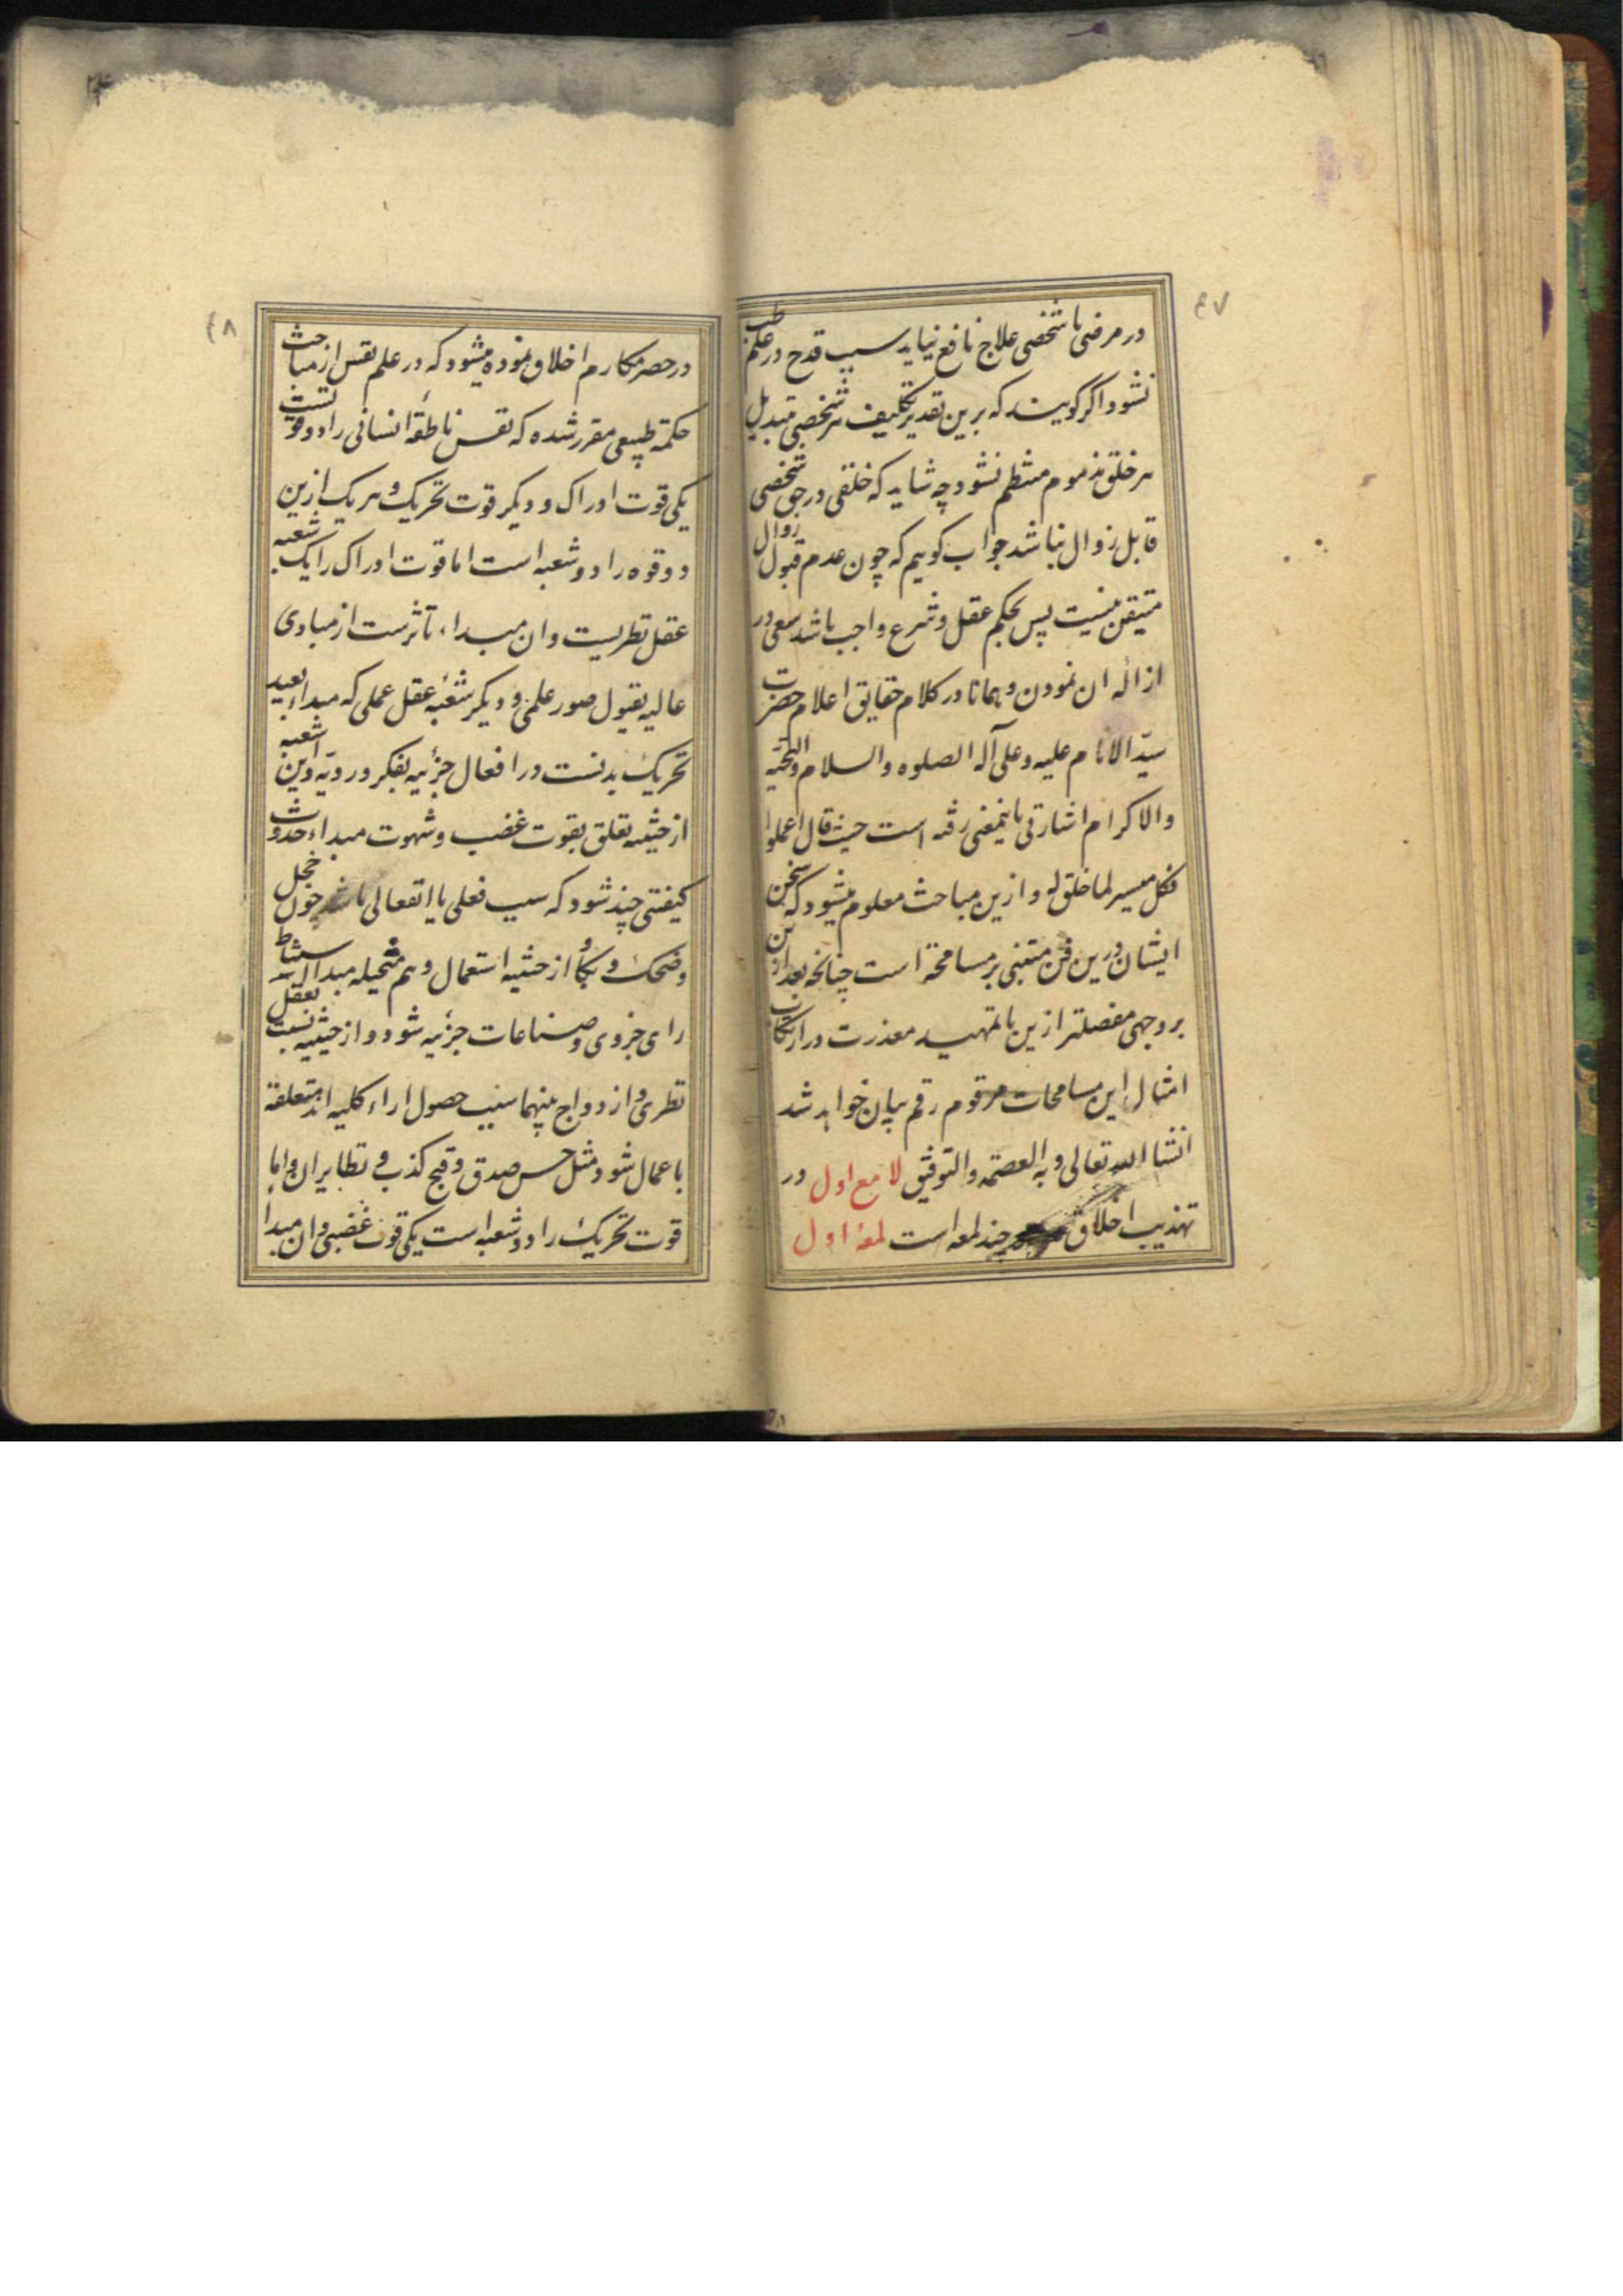 ۴۷
در مرضی با شخصی علاج نافع نیاید سبب قدح در علم طب
نشود و اگر گویند که برین تقدیر تکلیف هر شخصی بتبدیل
هر خلق مذموم منتظم نشود چه شاید که خلقی در حق شخصی
قابل زوال نباشد جواب گوییم که چون عدم قبول زوال
متیقن نیست پس بحکم عقل و شرع واجب باشد سعی در
ازاله ان نمودن و همانا در کلام حقایق اعلام حضرت
سید الانام علیه و علی آله الصلوه والسلام والتحیه
والاکرام اشارتی باینمعنی رفته است حیث قال اعملوا
فکل میسر لما خلق له و ازین مباحث معلوم میشود که سخن
ایشان درین فن مبتنی بر مسامحه است چنانچه بعد ازین
بر وجهی مفصلتر ازین با تمهید معذرت در ارتکاب
امثال این مسامحات مرقوم رقم بیان خواهد شد
انشا الله تعالی و به العصمه والتوفیق لامع اول در
تهذیب اخلاق چند لمعه است لمعهٔ اول
۴۸
در حصر مکارم اخلاق نموده میشود که در علم نفس از مباحث
حکمة طبیعی مقرر شده که نفس ناطقهٔ انسانی را دو قوتست
یکی قوت ادراک و دیگر قوت تحریک و هر یک ازین
دو قوه را دو شعبه است اما قوت ادراک را یک شعبه
عقل نظریست و ان مبداء تاثرست از مبادی
عالیه بقبول صور علمی و دیگر شعبهٔ عقل عملی که مبداء بعید
تحریک بدنست در افعال جزئیه بفکر و رویه و این شعبه
از حیثیه تعلق بقوت غضب و شهوت مبداء حدوث
کیفیتی چند شود که سبب فعلی یا انفعالی باشد چون خجل
و ضحک و بکا و از حیثیه استعمال وهم و متخیله مبدا استنباط
رای جزوی و صناعات جزئیه شود و از حیثیه نسبت بعقل
نظری و ازدواج بینهما سبب حصول اراء کلیه اند متعلقة
باعمال شود مثل حسن صدق و قبح کذب و نظایر ان و اما
قوت تحریک را دو شعبه است یکی قوت غضبی و ان مبدا